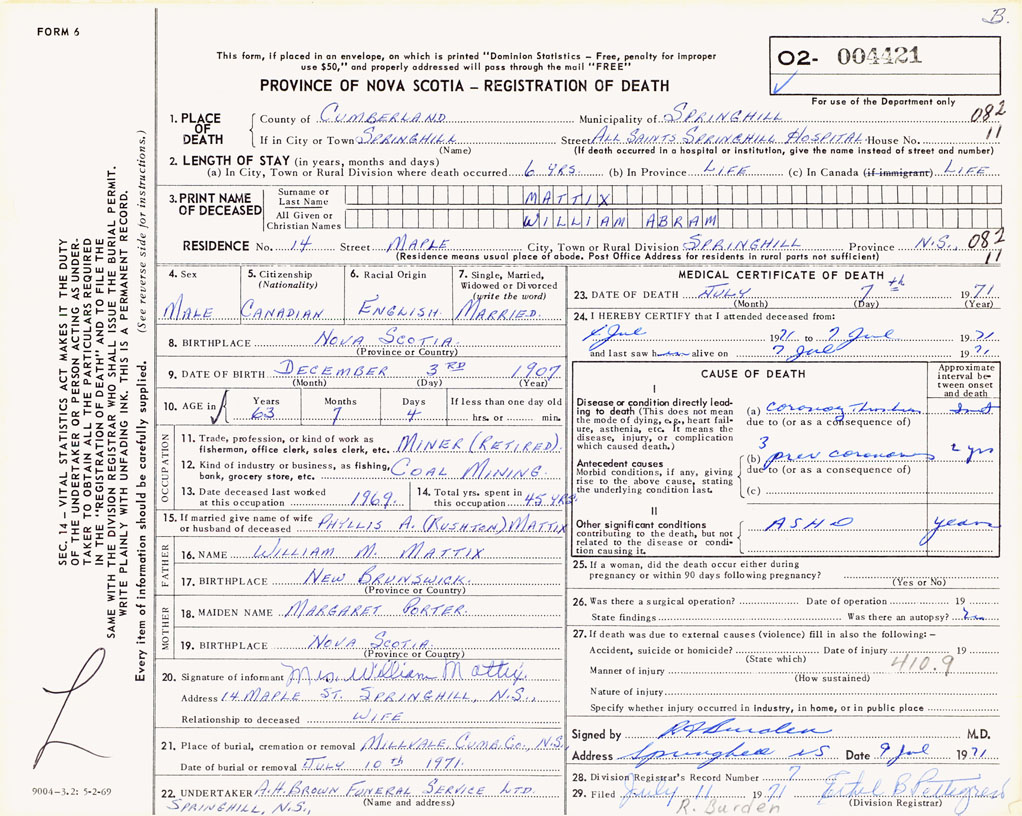 B.
FORM 6
This form, if placed in an envelope, on which is printed "Dominion Statistics – Free, penalty for improper
use $50," and properly addressed will pass through the mail "FREE"
PROVINCE OF NOVA SCOTIA – REGISTRATION OF DEATH
02- 004421
For use of the Department only
1. PLACE OF DEATH County of CUMBERLAND Municipality of SPRINGHILL 082
If in City or Town SPRINGHILL Street ALL SAINTS SPRINGHILL HOSPITAL House No. 11
(Name) (If death occurred in a hospital or institution, give the name instead of street and number)
2. LENGTH OF STAY (in years, months and days)
(a) In City, Town or Rural Division where death occurred 6 YRS. (b) In Province LIFE (c) In Canada (if immigrant) LIFE
3. PRINT NAME OF DECEASED Surname or Last Name MATTIX
All Given or Christian Names WILLIAM ABRAM
RESIDENCE No. 14 Street MAPLE City, Town or Rural Division SPRINGHILL Province N.S. 082
(Residence means usual place of abode. Post Office Address for residents in rural parts not sufficient) 11
SEC. 14 – VITAL STATISTICS ACT MAKES IT THE DUTY
OF THE UNDERTAKER OR PERSON ACTING AS UNDER-
TAKER TO OBTAIN ALL THE PARTICULARS REQUIRED
IN THE "REGISTRATION OF DEATH" AND TO FILE THE
SAME WITH THE DIVISION REGISTRAR WHO SHALL ISSUE THE BURIAL PERMIT.
WRITE PLAINLY WITH UNFADING INK. THIS IS A PERMANENT RECORD.
Every item of information should be carefully supplied. (See reverse side for instructions.)
4. Sex MALE
5. Citizenship (Nationality) CANADIAN
6. Racial Origin ENGLISH
7. Single, Married, Widowed or Divorced (write the word) MARRIED.
8. BIRTHPLACE NOVA SCOTIA.
(Province or Country)
9. DATE OF BIRTH DECEMBER 3RD 1907
(Month) (Day) (Year)
10. AGE in Years Months Days If less than one day old
63 7 4 hrs. or min.
OCCUPATION
11. Trade, profession, or kind of work as
fisherman, office clerk, sales clerk, etc. MINER (RETIRED).
12. Kind of industry or business, as fishing,
bank, grocery store, etc. COAL MINING
13. Date deceased last worked at this occupation 1969. 14. Total yrs. spent in this occupation 45 YRS.
15. If married give name of wife
or husband of deceased PHYLLIS A. (RUSHTON) MATTIX
FATHER
16. NAME WILLIAM M. MATTIX
17. BIRTHPLACE NEW BRUNSWICK.
(Province or Country)
MOTHER
18. MAIDEN NAME MARGARET PORTER.
19. BIRTHPLACE NOVA SCOTIA.
(Province or Country)
20. Signature of informant Mrs. William Mattix.
Address 14 MAPLE ST. SPRINGHILL, N.S.,
Relationship to deceased WIFE
21. Place of burial, cremation or removal MILLVALE, CUMB. CO., N.S.
Date of burial or removal JULY 10th 1971.
22. UNDERTAKER A.H. BROWN FUNERAL SERVICE LTD.
SPRINGHILL, N.S., (Name and address)
9004-3.2: 5-2-69
MEDICAL CERTIFICATE OF DEATH
23. DATE OF DEATH JULY 7th 1971
(Month) (Day) (Year)
24. I HEREBY CERTIFY that I attended deceased from:
Jul 1971 to 7 Jul 1971
and last saw h alive on 7 Jul 1971
CAUSE OF DEATH
Approximate interval between onset and death
I
Disease or condition directly lead-
ing to death (This does not mean
the mode of dying, e.g., heart fail-
ure, asthenia, etc. It means the
disease, injury, or complication
which caused death.)
(a) coronary
due to (or as a consequence of)
3
Antecedent causes
Morbid conditions, if any, giving
rise to the above cause, stating
the underlying condition last.
(b) prev coronary 2 yrs
due to (or as a consequence of)
(c)
II
Other significant conditions
contributing to the death, but not
related to the disease or condi-
tion causing it.
ASHD years
25. If a woman, did the death occur either during
pregnancy or within 90 days following pregnancy?
(Yes or No)
26. Was there a surgical operation? Date of operation 19
State findings Was there an autopsy?
27. If death was due to external causes (violence) fill in also the following: –
Accident, suicide or homicide? Date of injury 19
(State which) 410.9
Manner of injury
(How sustained)
Nature of injury
Specify whether injury occurred in industry, in home, or in public place
Signed by R Burden M.D.
Address Springhill NS Date 9 Jul 1971
28. Division Registrar's Record Number 7
29. Filed July 11 1971 Ethel B Pettigrew
R. Burden (Division Registrar)